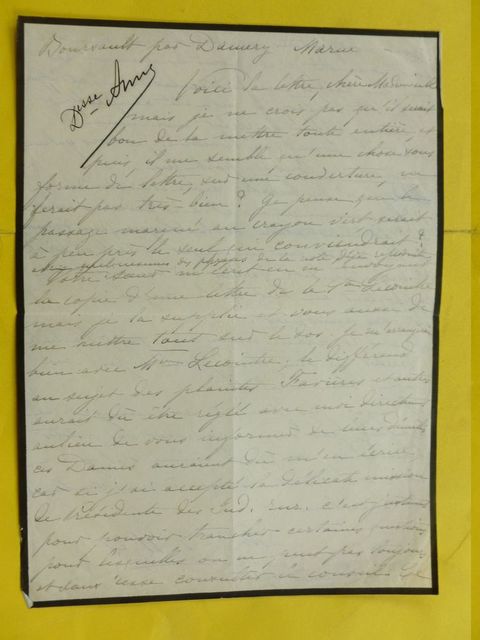 Boursault par Damery Marne
Dsse Anne
Voici la lettre, chère Mademoiselle
mais je ne crois pas qu'il serait
bon de la mettre toute entière, et
puis il me semble qu'une chose sous
forme de lettre, sur une couverture, ne
ferait pas très bien? Je pense que le
passage marqué au crayon vert serait
à peu près le seul qui conviendrait?
avec quelques unes des phrases de la
Votre Soeur m'écrit en m'envoyant
la copie d'une lettre de la Lecointre
mais je la supplie et vous aussi de
me mettre tout sur le dos. Je m'arrangerai
bien avec Me Lecointre; le différend
au sujet des plaintes et autres
aurait dû être réglé avec moi directement
au lieu de vous informer de leurs
ces Dames auraient dû m'en écrire,
car si j'ai accepté la délicate mission
de Présidente des c'est justement
pour pouvoir trancher certaines questions
pour lesquelles on ne peut pas toujours
et sans cesse consulter le conseil. Je